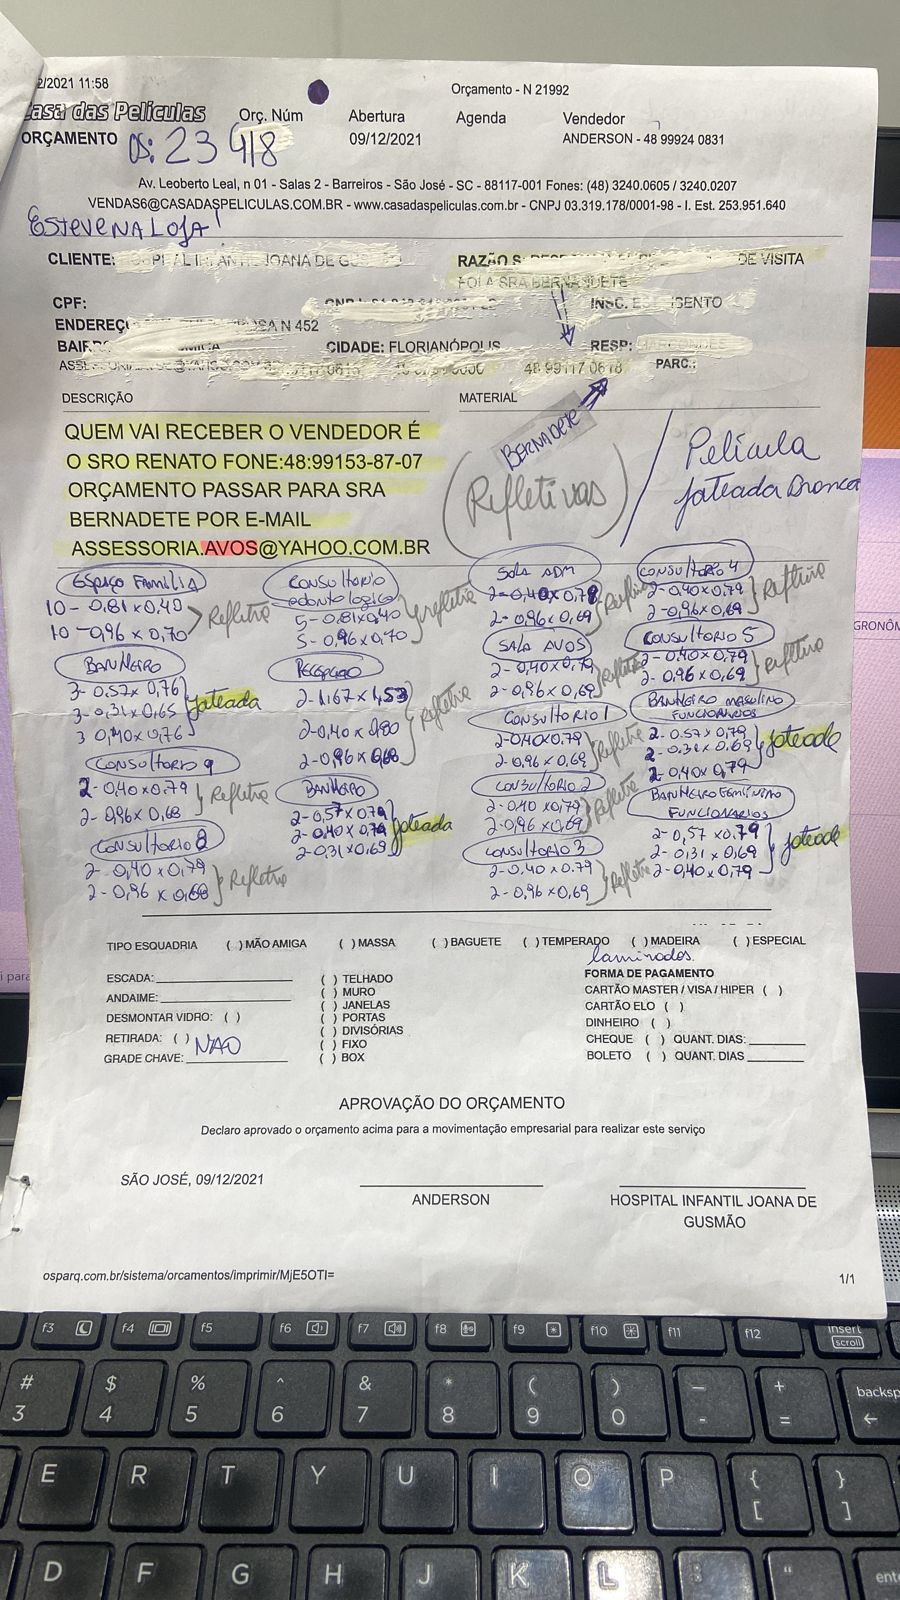 2/2021 11:58
Orçamento - N 21992
Casa das Películas
Orç. Núm
Abertura
Agenda
Vendedor
ORÇAMENTO
OS: 23 418
09/12/2021
ANDERSON - 48 99924 0831
Av. Leoberto Leal, n 01 - Salas 2 - Barreiros - São José - SC - 88117-001 Fones: (48) 3240.0605 / 3240.0207
VENDAS6@CASADASPELICULAS.COM.BR - www.casadaspeliculas.com.br - CNPJ 03.319.178/0001-98 - I. Est. 253.951.640
ESTEVE NA LOJA!
CLIENTE: JOANA DE
RAZÃO S: DE VISITA
SRA BERNADETE
CPF:
INSC. ISENTO
ENDEREÇ N 452
BAIR
CIDADE: FLORIANÓPOLIS
RESP:
48 99117 0618
PARC.:
DESCRIÇÃO
MATERIAL
QUEM VAI RECEBER O VENDEDOR É
O SRO RENATO FONE:48:99153-87-07
ORÇAMENTO PASSAR PARA SRA
BERNADETE POR E-MAIL
ASSESSORIA.AVOS@YAHOO.COM.BR
BERNADETE
(Refletivas)
/ Película
jateada Branca
ESPAÇO FAMILIA
10-0,81x0,40
10-0,96x0,70
Refletivo
BANHEIRO
3-0.57x0,76
3-0,31x0,65
3 0,40x0,76
jateada
CONSULTORIO 9
2-0,40x0.79
2-0,96x0,68
Refletivo
CONSULTORIO 8
2-0,40x0,79
2-0,96x0,68
Refletivo
CONSULTORIO
odontologico
5-0.81x0.40
5-0,96x0,70
refletivo
RECEPÇÃO
2-1.67x1,53
2-0,40x0,80
2-0,96x0,68
Refletivo
BANHEIRO
2-0,57x0.79
2-0,40x0,79
2-0,31x0,69
jateada
SALA ADM
2-0,40x0,79
2-0,96x0,69
Refletivo
SALA AVOS
2-0,40x0,79
2-0,96x0,69
Refletivo
CONSULTORIO 1
2-0,40x0,79
2-0,96x0,69
Refletivo
CONSULTORIO 2
2-0,40x0,79
2-0,96x0,69
Refletivo
CONSULTORIO 3
2-0.40x0.79
2-0,96x0,69
Refletivo
CONSULTORIO 4
2-0.40x0.79
2-0.96x0.69
Refletivo
CONSULTORIO 5
2-0.40x0.79
2-0,96x0,69
Refletivo
BANHEIRO MASCULINO
FUNCIONARIOS
2-0.57x0,79
2-0.31x0.69
2-0,40x0,79
jateada
BANHEIRO FEMININO
FUNCIONARIOS
2-0,57x0.79
2-0,31x0,69
2-0,40x0,79
jateada
TIPO ESQUADRIA ( ) MÃO AMIGA ( ) MASSA ( ) BAGUETE ( ) TEMPERADO ( ) MADEIRA ( ) ESPECIAL
laminados
ESCADA:
ANDAIME:
DESMONTAR VIDRO: ( )
RETIRADA: ( ) NÃO
GRADE CHAVE:
( ) TELHADO
( ) MURO
( ) JANELAS
( ) PORTAS
( ) DIVISÓRIAS
( ) FIXO
( ) BOX
FORMA DE PAGAMENTO
CARTÃO MASTER / VISA / HIPER ( )
CARTÃO ELO ( )
DINHEIRO ( )
CHEQUE ( ) QUANT. DIAS:
BOLETO ( ) QUANT. DIAS
APROVAÇÃO DO ORÇAMENTO
Declaro aprovado o orçamento acima para a movimentação empresarial para realizar este serviço
SÃO JOSÉ, 09/12/2021
ANDERSON
HOSPITAL INFANTIL JOANA DE
GUSMÃO
osparq.com.br/sistema/orcamentos/imprimir/MjE5OTI=
1/1
i para
GRONÔM
f3 f4 f5 f6 f7 f8 f9 f10 f11 f12 insert
scroll
# $ % ^ & * ( ) _ + backsp
3 4 5 6 7 8 9 0 - =
E R T Y U I O P { }
[ ]
D F G H J K L : " ente